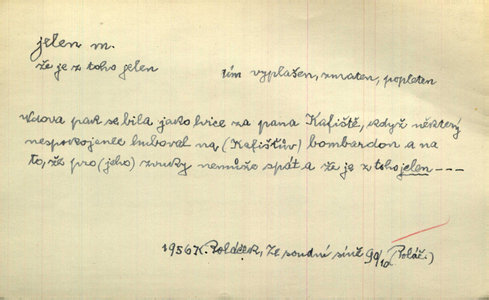 jelen m.
že je z toho jelen tím vyplašen, zmaten, popleten
Vdova pak se bila jako lvice za pana Kafiště, když některý
nespokojenec huboval na (Kafištův) bombardon a na
to, že pro (jeho) zvuky nemůže spát a že je z toho jelen ---
1956 K. Poláček, Ze soudní síně 99/10 (Poláč.)